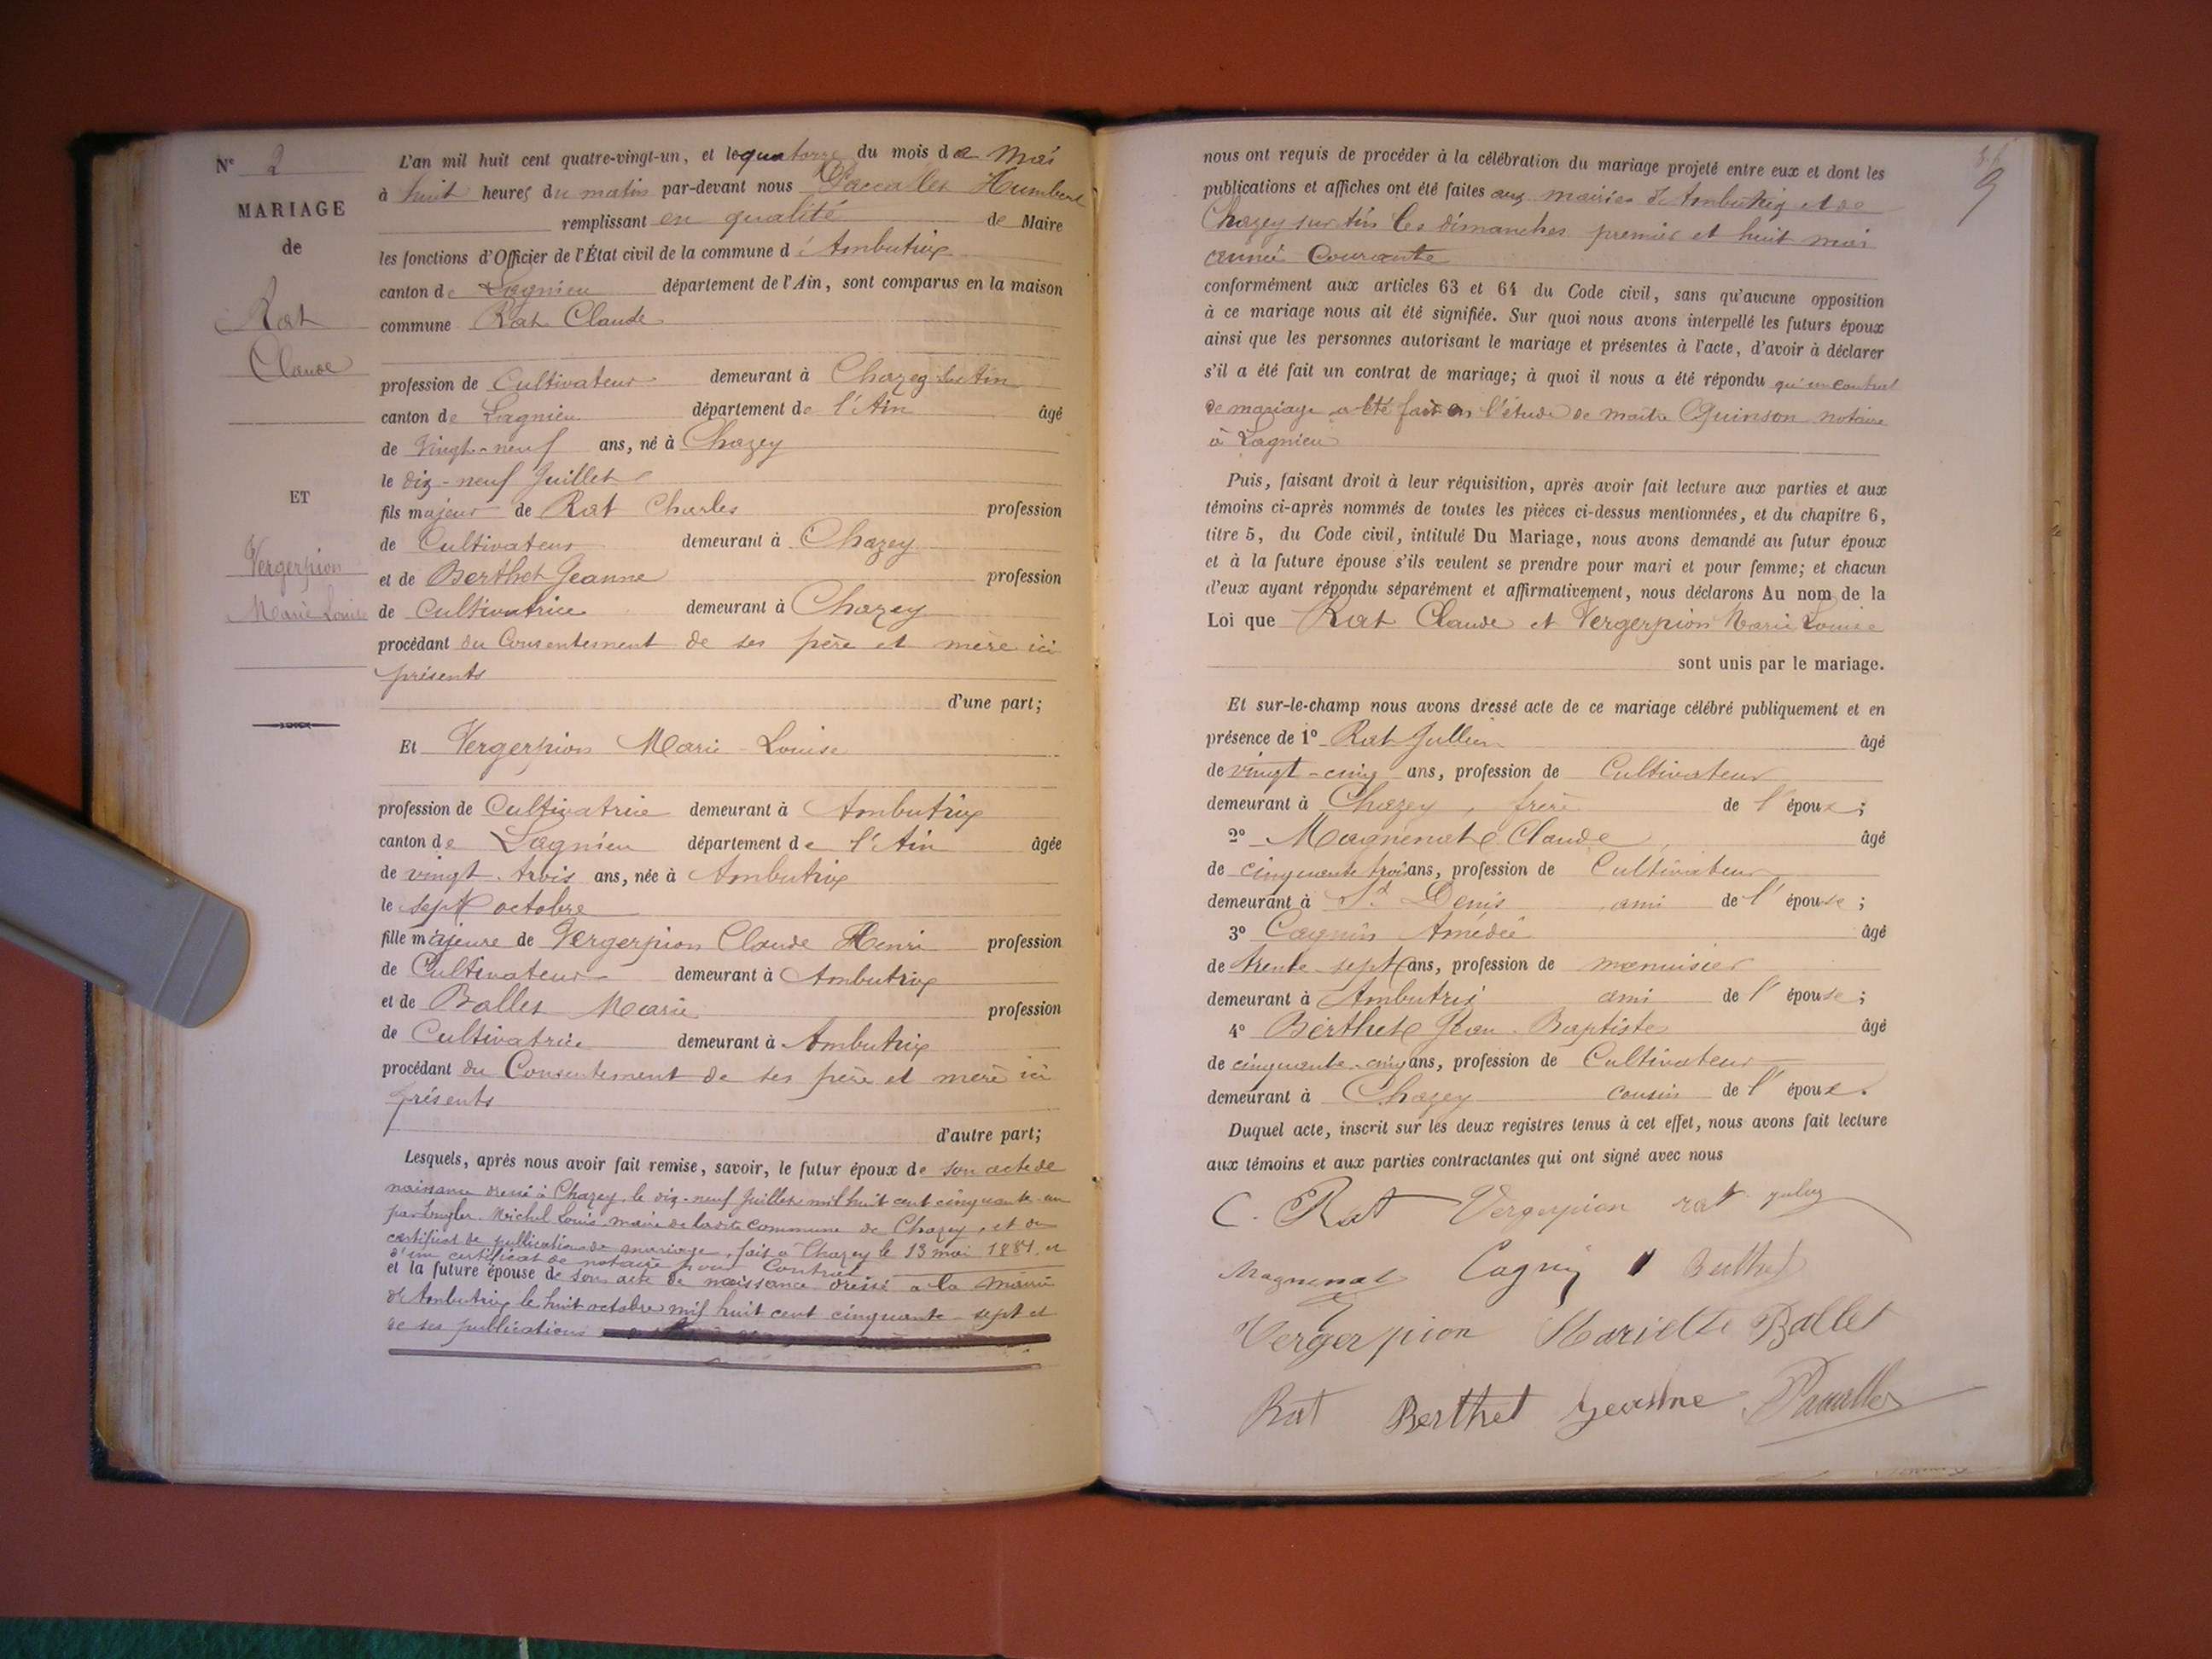 N° 2
MARIAGE
de
Rat
Claude
ET
Vergerpion
Marie Louise
L'an mil huit cent quatre-vingt-un, et le quatorze du mois de mai
à huit heures du matin par-devant nous Paccallet Humbert
remplissant en qualité de Maire
les fonctions d'Officier de l'État civil de la commune d'Ambutrix
canton de Lagnieu département de l'Ain, sont comparus en la maison
commune Rat Claude
profession de Cultivateur demeurant à Chazey sur Ain
canton de Lagnieu département de l'Ain âgé
de vingt-neuf ans, né à Chazey
le dix-neuf Juillet
fils majeur de Rat Charles profession
de Cultivateur demeurant à Chazey
et de Berthet Jeanne profession
de Cultivatrice demeurant à Chazey
procédant du Consentement de ses père et mère ici
présents
d'une part;
Et Vergerpion Marie-Louise
profession de Cultivatrice demeurant à Ambutrix
canton de Lagnieu département de l'Ain âgée
de vingt-trois ans, née à Ambutrix
le sept octobre
fille majeure de Vergerpion Claude Henri profession
de Cultivateur demeurant à Ambutrix
et de Ballet Marie profession
de Cultivatrice demeurant à Ambutrix
procédant du Consentement de ses père et mère ici
présents
d'autre part;
Lesquels, après nous avoir fait remise, savoir, le futur époux de son acte de
naissance dressé à Chazey le dix-neuf Juillet mil huit cent cinquante-un
par Michel Louis maire de ladite commune de Chazey, et du
certificat de publication de mariage, fait à Chazey le 13 mai 1881 et
d'un certificat de notaire pour Contrat
et la future épouse de son acte de naissance dressé à la mairie
d'Ambutrix le huit octobre mil huit cent cinquante-sept et
de ses publications
9
nous ont requis de procéder à la célébration du mariage projeté entre eux et dont les
publications et affiches ont été faites aux mairies d'Ambutrix et de
Chazey sur Ain les dimanches premier et huit mai
année Courante
conformément aux articles 63 et 64 du Code civil, sans qu'aucune opposition
à ce mariage nous ait été signifiée. Sur quoi nous avons interpellé les futurs époux
ainsi que les personnes autorisant le mariage et présentes à l'acte, d'avoir à déclarer
s'il a été fait un contrat de mariage; à quoi il nous a été répondu qu'un contrat
de mariage a été fait en l'étude de maître Quinson notaire
à Lagnieu
Puis, faisant droit à leur réquisition, après avoir fait lecture aux parties et aux
témoins ci-après nommés de toutes les pièces ci-dessus mentionnées, et du chapitre 6,
titre 5, du Code civil, intitulé Du Mariage, nous avons demandé au futur époux
et à la future épouse s'ils veulent se prendre pour mari et pour femme; et chacun
d'eux ayant répondu séparément et affirmativement, nous déclarons Au nom de la
Loi que Rat Claude et Vergerpion Marie Louise
sont unis par le mariage.
Et sur-le-champ nous avons dressé acte de ce mariage célébré publiquement et en
présence de 1° Rat Jullien âgé
de vingt-cinq ans, profession de Cultivateur
demeurant à Chazey, frère de l'époux;
2° Magnenat Claude âgé
de cinquante trois ans, profession de Cultivateur
demeurant à St Denis ami de l'épouse;
3° Cagnin Amédée âgé
de trente-sept ans, profession de menuisier
demeurant à Ambutrix ami de l'épouse;
4° Berthet Jean-Baptiste âgé
de cinquante-cinq ans, profession de Cultivateur
demeurant à Chazey cousin de l'époux.
Duquel acte, inscrit sur les deux registres tenus à cet effet, nous avons fait lecture
aux témoins et aux parties contractantes qui ont signé avec nous
C. Rat Vergerpion rat
Magnenat Cagnin Berthet
Vergerpion Mariette Ballet
Rat Berthet Paccallet